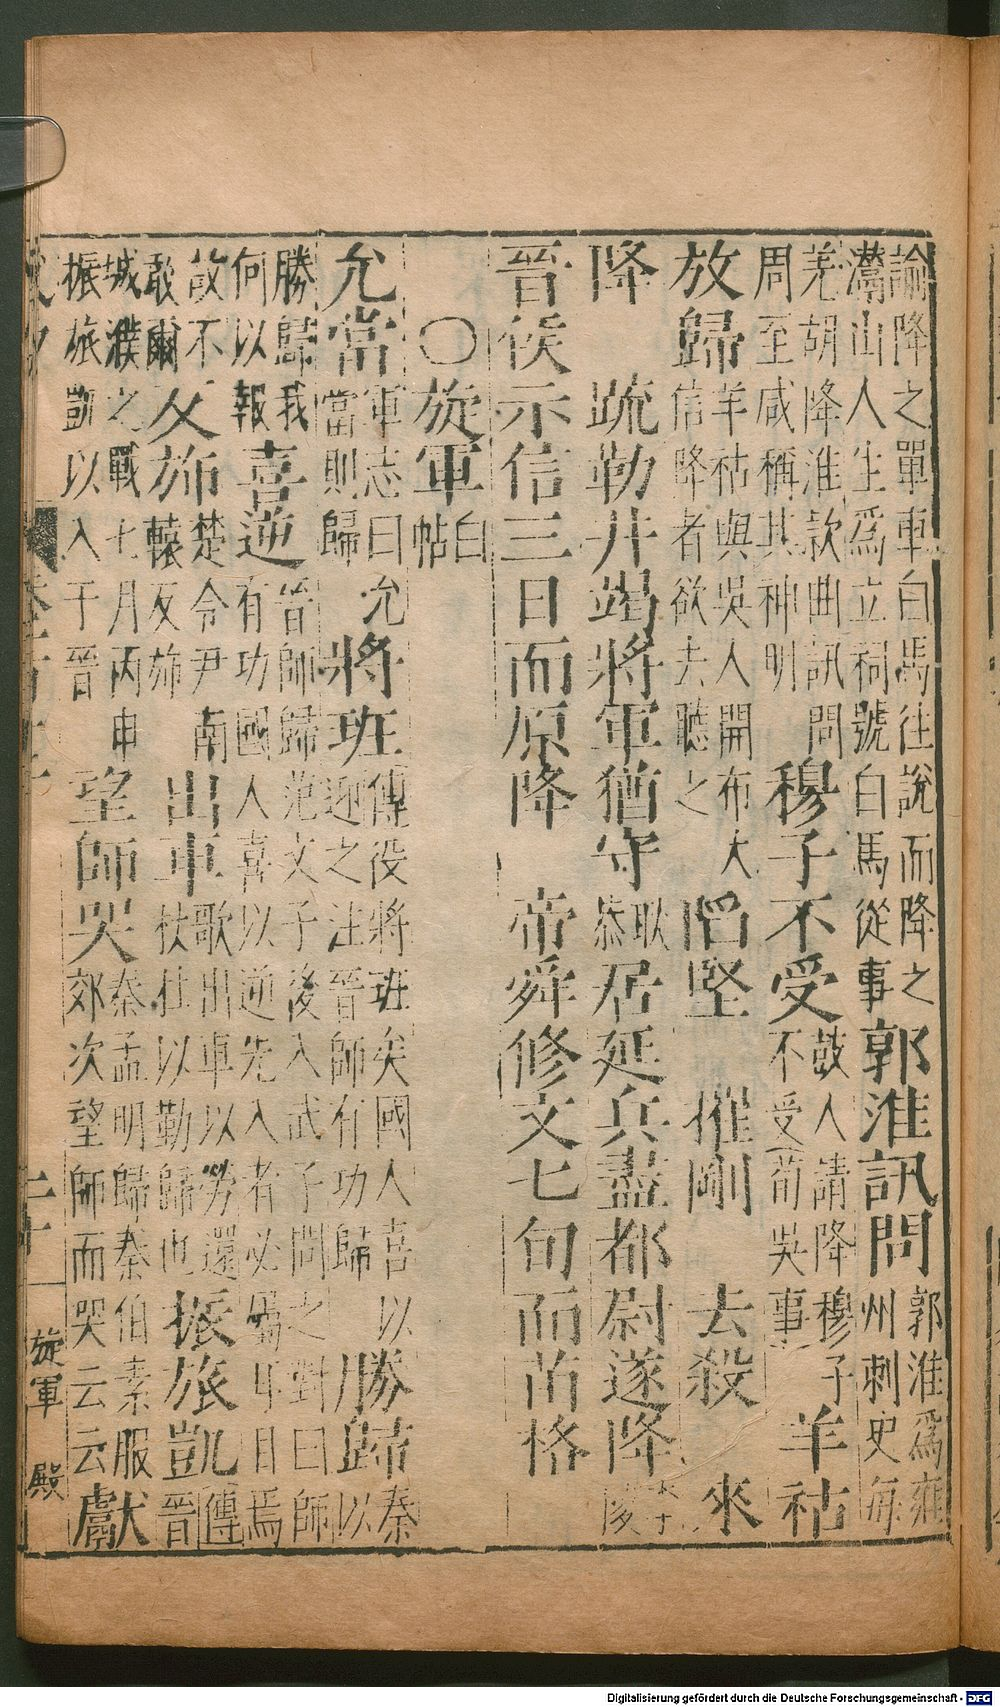 諭降之單車白馬往說而降之
灊山人生爲立祠號白馬從事郭淮訊問郭淮爲雍
州刺史每
羌胡降淮款曲訊問
周至咸稱其神明穆子不受鼓人請降穆子
不受荀吳事羊祜
放歸羊祜與吳人開布大
信降者欲去聽之陷堅 摧剛 去殺 來
降 疏勒井竭將軍猶守耿
恭居延兵盡都尉遂降李
陵
晉侯示信三日而原降 帝舜修文七旬而苗格
〇旋軍白
帖
允當軍志曰允
當則歸將班傳役將班矣國人喜以
迎之注晉師有功歸勝歸秦
以
勝歸我
何以報喜逆晉師歸范文子後入武子問之對曰師
有功國人喜以逆先入者必屬耳目焉
故不
敢爾反斾楚令尹南
轅反斾出車歌出車以勞還
杕杜以勤歸也振旅凱傳
晉
城濮之戰七月丙申
振旅凱以入于晉望師哭秦孟明歸秦伯素服
郊次望師而哭云云獻
二十
旋軍 殿
Digitalisierung gefördert durch die Deutsche Forschungsgemeinschaft - DFG